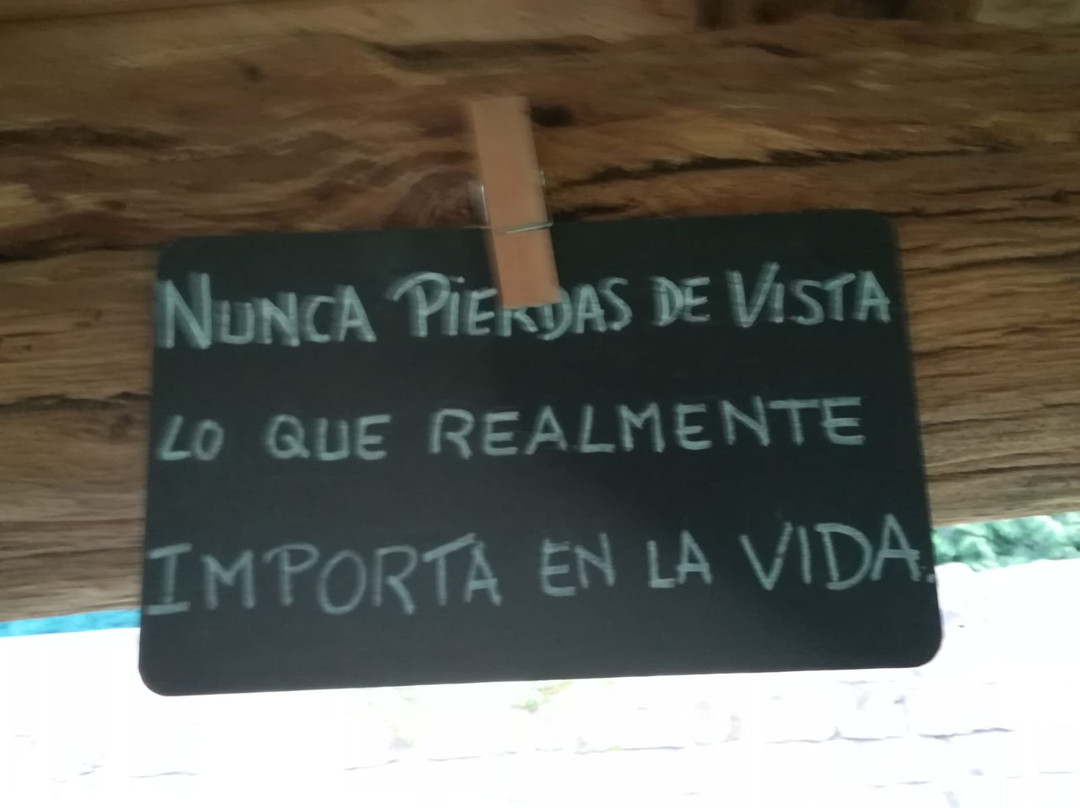 NUNCA PIERDAS DE VISTA
LO QUE REALMENTE
IMPORTA EN LA VIDA.